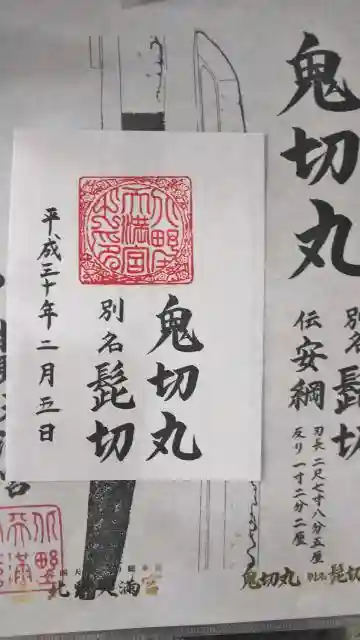 鬼切丸
別名 髭切
伝 安綱
刃長 二尺七寸八分五厘
反り 一寸二分二厘
鬼切丸
別名 髭切
平成三十年 二月 五日
北野天満宮
鬼切丸 別名 髭切
北野天満宮